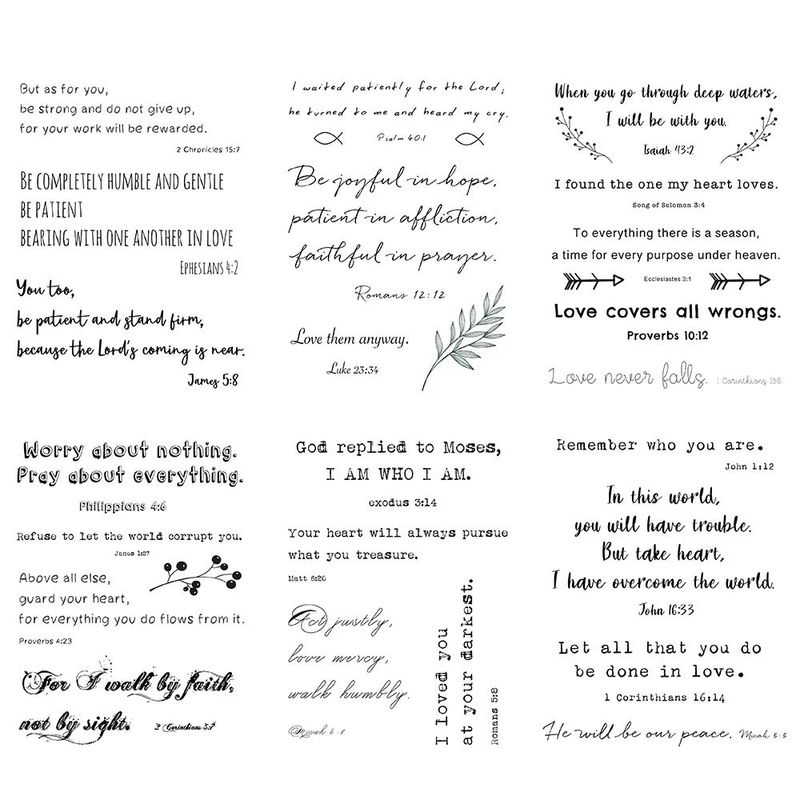 But as for you,
be strong and do not give up,
for your work will be rewarded.
2 Chronicles 15:7
BE COMPLETELY HUMBLE AND GENTLE
BE PATIENT
BEARING WITH ONE ANOTHER IN LOVE
EPHESIANS 4:2
You too,
be patient and stand firm,
because the Lord's coming is near.
James 5:8
I waited patiently for the Lord;
he turned to me and heard my cry.
Psalm 40:1
Be joyful in hope,
patient in affliction,
faithful in prayer.
Romans 12:12
Love them anyway.
Luke 23:34
When you go through deep waters,
I will be with you.
Isaiah 43:2
I found the one my heart loves.
Song of Solomon 3:4
To everything there is a season,
a time for every purpose under heaven.
Ecclesiastes 3:1
Love covers all wrongs.
Proverbs 10:12
Love never fails. 1 Corinthians 13:8
Worry about nothing.
Pray about everything.
Philippians 4:6
Refuse to let the world corrupt you.
James 1:27
Above all else,
guard your heart,
for everything you do flows from it.
Proverbs 4:23
For I walk by faith,
not by sight. 2 Corinthians 5:7
God replied to Moses,
I AM WHO I AM.
exodus 3:14
Your heart will always pursue
what you treasure.
Matt 6:20
Act justly,
love mercy,
walk humbly.
Micah 6:8
I loved you
at your darkest.
Romans 5:8
Remember who you are.
John 1:12
In this world,
you will have trouble.
But take heart,
I have overcome the world.
John 16:33
Let all that you do
be done in love.
1 Corinthians 16:14
He will be our peace. Micah 5:5